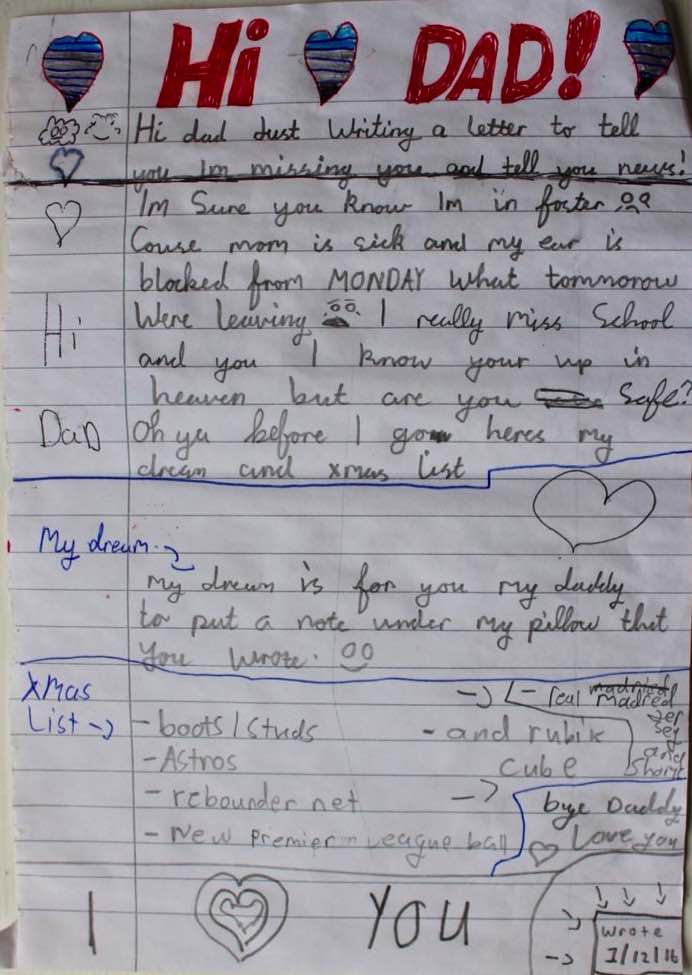 Hi DAD!
Hi dad Just Writing a letter to tell
you Im missing you and tell you news!
Im Sure you know Im in foster
Couse mom is sick and my ear is
blocked from MONDAY What tommorow
Were leaving I really miss School
Hi
and you I know your up in
heaven but are you Safe?
DaD
Oh ya before I go heres my
dream and xmas list
My dream
My dream is for you my daddy
to put a note under my pillow that
you wrote.
Xmas
List
- boots/studs
- Astros
- rebounder net
- New Premier League ball
- real madred
jersey
and
shorts
- and rubik
cube
bye Daddy
Love you
I YOU
Wrote
1/12/16